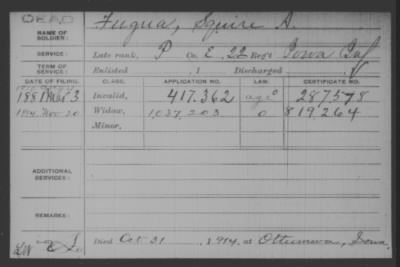 DEAD
NAME OF SOLDIER: Fuqua, Squire A.
SERVICE: Late rank, P Co. E, 22 Reg't Iowa Inf
TERM OF SERVICE: Enlisted , 1 Discharged , 1
DATE OF FILING. CLASS. APPLICATION NO. LAW. CERTIFICATE NO.
1881 Mar 3 Invalid, 417.362 287578
1914 Nov 20 Widow, 1,037,203 819264
Minor,
ADDITIONAL SERVICES:
REMARKS:
Died Oct 31, 1914, at Ottumwa, Iowa